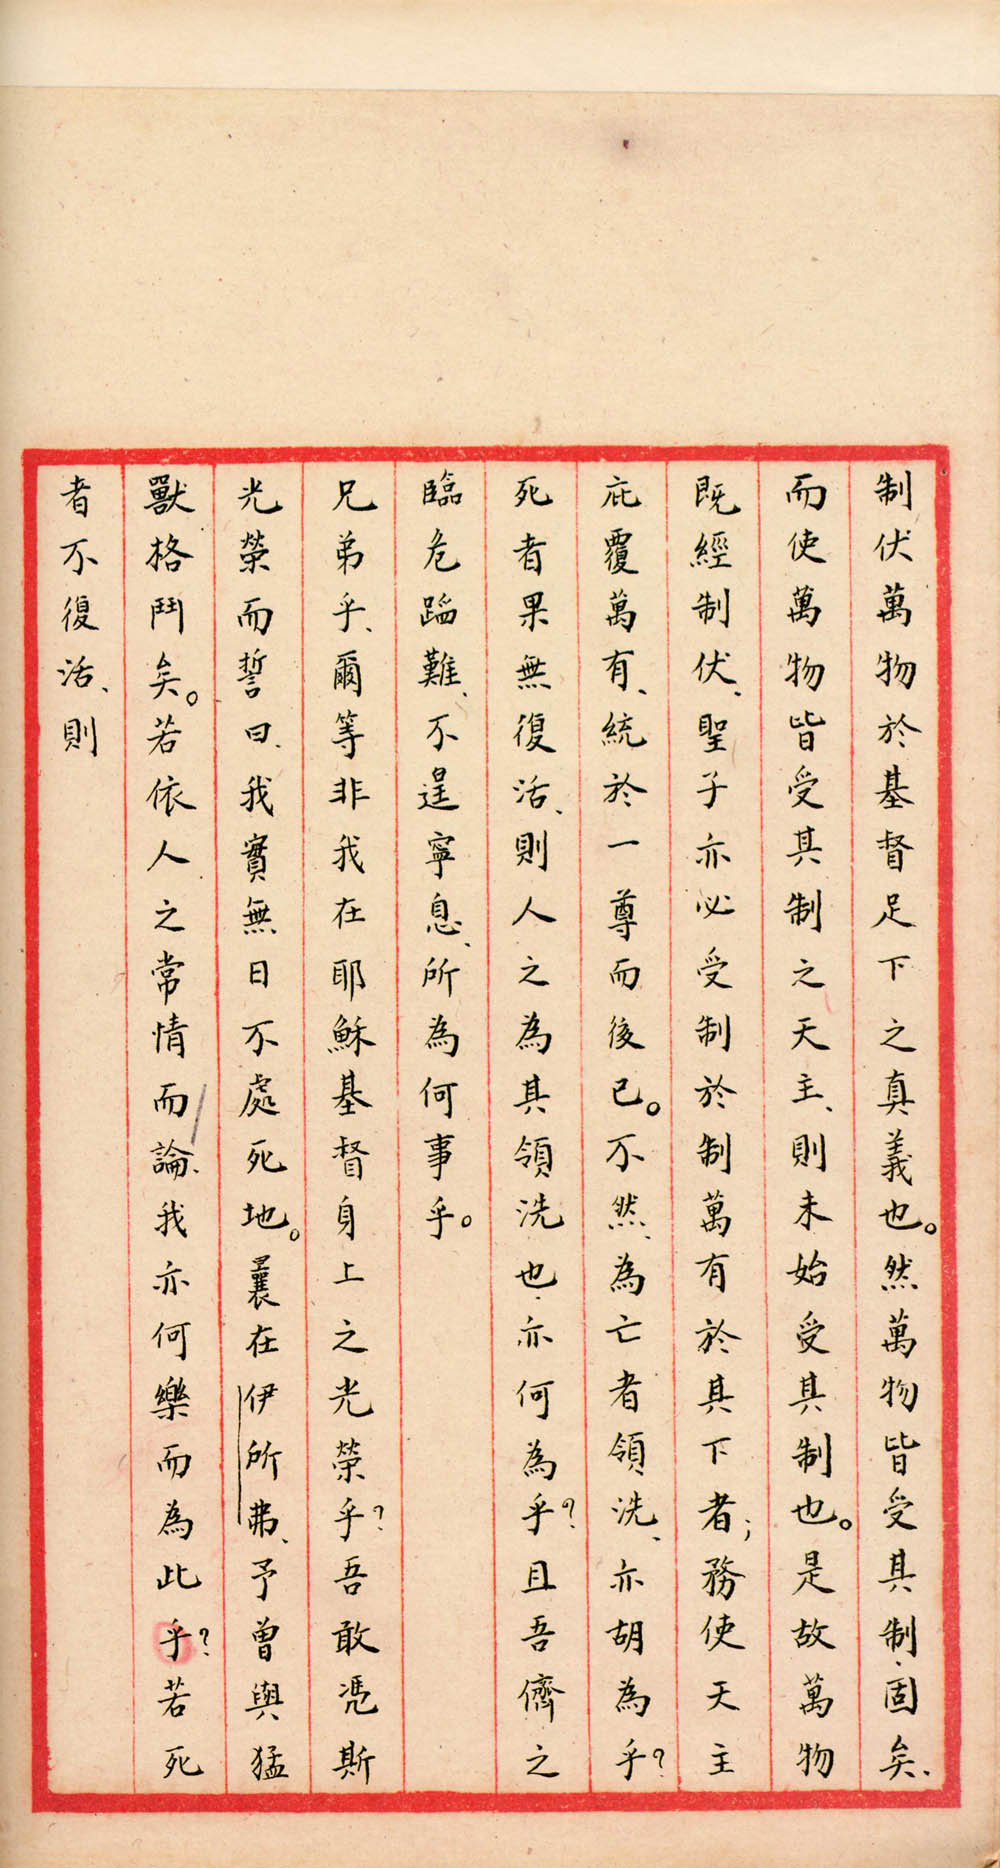 制伏萬物於基督足下之真義也。然萬物皆受其制、固矣、
而使萬物皆受其制之天主、則未始受其制也。是故萬物
既經制伏、聖子亦必受制於制萬有於其下者；務使天主
庇覆萬有、統於一尊而後已。不然、為亡者領洗、亦胡為乎？
死者果無復活、則人之為其領洗也、亦何為乎？且吾儕之
臨危蹈難、不遑寧息、所為何事乎。
兄弟乎、爾等非我在耶穌基督身上之光榮乎？吾敢憑斯
光榮而誓曰、我實無日不處死地。曩在伊所弗、予曾與猛
獸格鬥矣。若依人之常情而論、我亦何樂而為此乎？若死
者不復活、則